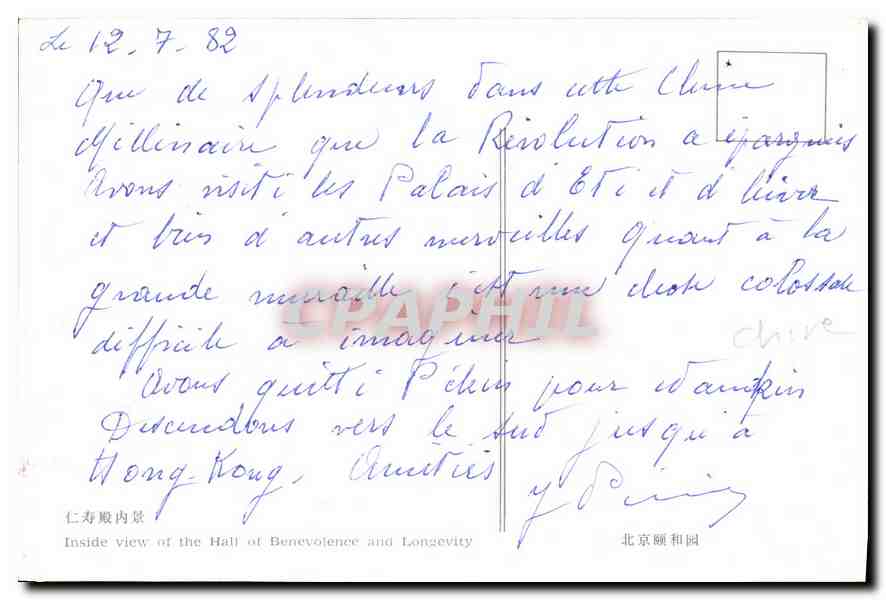 Le 12.7.82
Que de splendeurs dans cette Chine
Millénaire que la Révolution a épargnés
Avons visité les Palais d'Eté et d'hiver
et bien d'autres merveilles Quant à la
grande muraille c'est une chose colossale
difficile à imaginer
chine
Avons quitté Pékin pour Nankin
Descendons vers le sud jusqu'à
Hong-Kong. Amitiés
仁寿殿内景
Inside view of the Hall of Benevolence and Longevity
北京颐和园
CPAPHIL